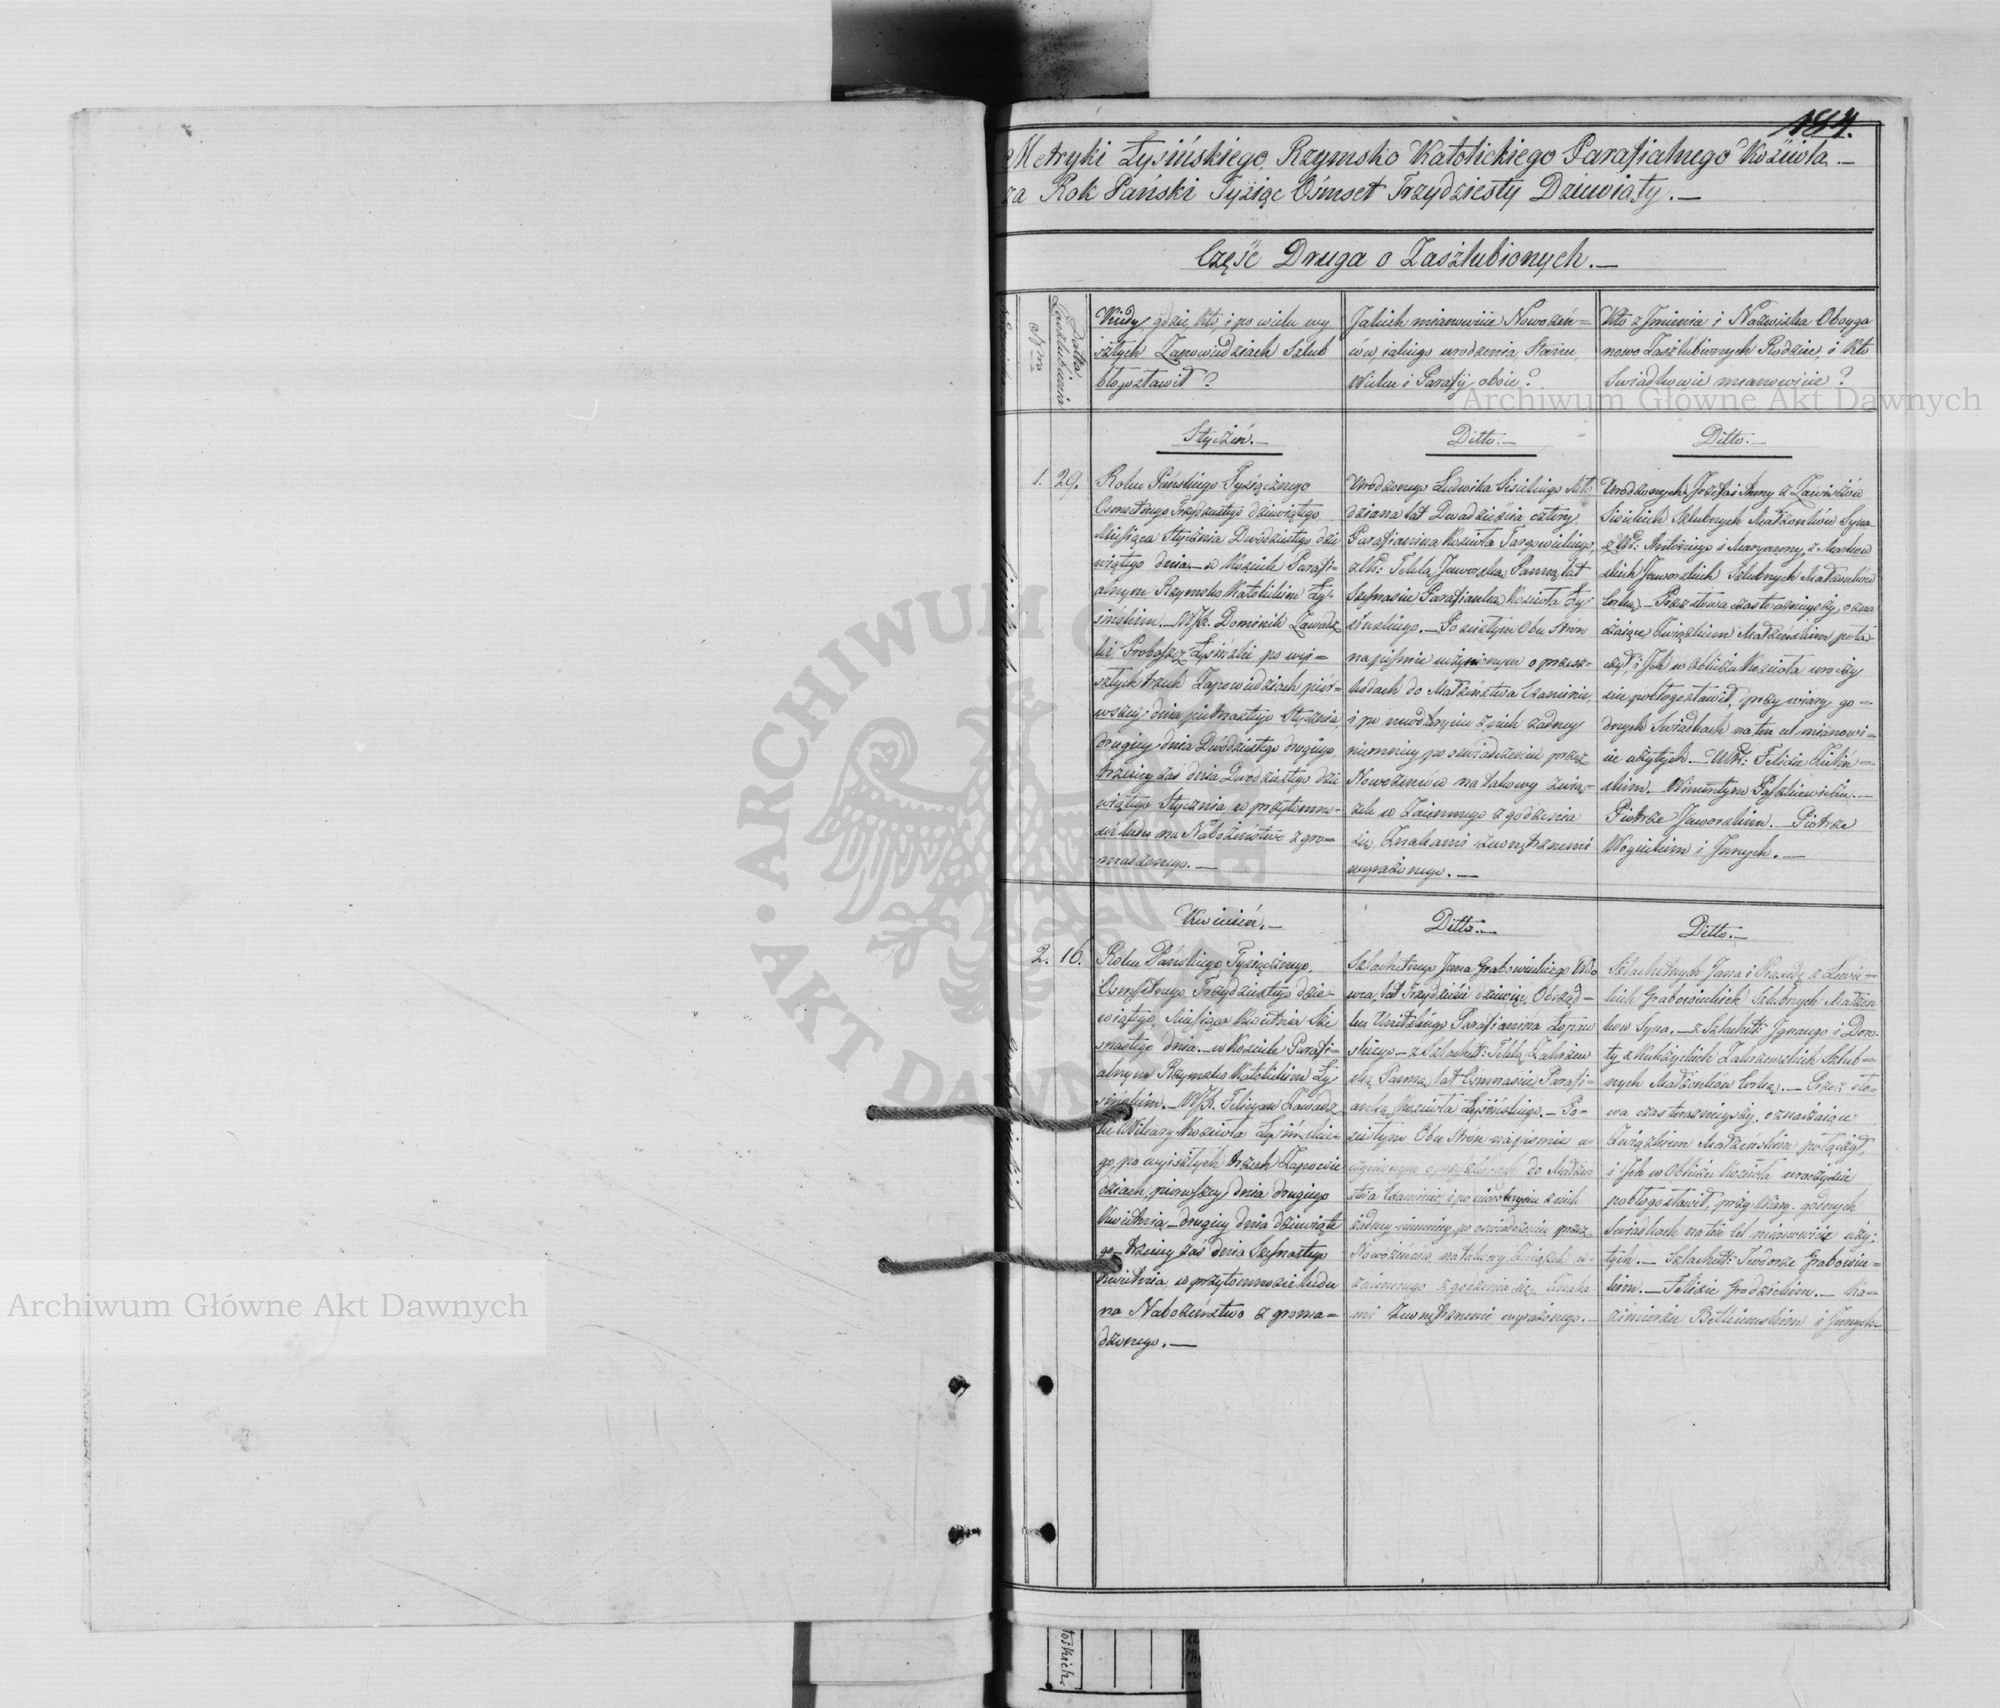 184.
Metryki Łysińskiego Rzymsko Katolickiego Parafialnego Kościoła.—
za Rok Pański Tysiąc Ośmset Trzydziesty Dziewiąty.—
Część Druga o Zaszlubionych.—
Nro
Datta Zaszlubienia
Kiedy, gdzie, kto, i po wielu wy
szłych Zapowiedziach Szlub
błogosławił?
Jakich mianowicie Nowożeń=
ców, jakiego urodzenia, Stanu,
Wieku i Parafij, oboie?
Kto z Jmienia i Nazwiska Oboyga
nowo Zaszlubionych Rodzice, i Kto
Swiadkowie mianowicie?
Archiwum Główne Akt Dawnych
Styczeń.—
Ditto.—
Ditto.—
1. 29.
Roku Pańskiego Tysiącznego
Osmsetnego Trzydziestego dziewiątego
Miesiąca Stycznia Dwódziestego dzie
wiątego dnia.— w Kościele Parafi=
alnym Rzymsko Katolickim Ły=
sińskim.— WJX. Dominik Zawadz
ki Proboszcz Łysiński po wyi=
szłych trzech Zapowiedziach, piér=
wszey, dnia pietnastego Stycznia,
drugiey, dnia Dwódziestego drugiego,
trzeciey zaś dnia Dwódziestego dzie
wiątego Stycznia w przytomno=
ści ludu na Nabożeństwo zgro=
madzonego.—
Urodzonego Ludwika Sisickiego Mło
dziana lat Dwadzieścia cztery
Parafianina Kościoła Targowickiego,
z Ur: Teklą Jaworską Panną lat
Szesnaście Parafianką Kościoła Ły=
sińskiego.— Po ścisłym Obu Stron
na piśmie uczynionym o przesz=
kodach do Małżeństwa Examinie,
i po nieodkryciu z nich żadney
niemniey, po oświadczeniu przez
Nowożeńców na takowy zwią=
zek w zaiemnego zgodzenia
się, Znakami zewnętrznemi
wyrażonego.—
Urodzonych Józefa i Anny z
Sisickich Szlubnych Małżonków Syna
z Ur: Antoniego i Maryanny z
Jaworskich Szlubnych Małżonków
Corką.— Przez słowa czasteraznieyszy, ozna
czaiące Związkiem Małżeńskim połą
czył i Jch w Obliczu Kościoła uroczy
ście pobłogosławił, przy wiary go=
dnych Swiadkach na ten cel mianowi=
cie użytych.— Ur: Felicie
Wincentym Paszkiewiczu.—
Piotrze Jaworskim.— Piotrze
Woycickim i Jnnych.—
Kwiecień.—
Ditto.—
Ditto.—
2. 16.
Roku Pańskiego Tysiącznego,
Osmsetnego Trzydziestego dzie=
wiątego, Miesiąca Kwietnia Sze
snastego dnia.— w Kościele Parafi=
alnym Rzymsko Katolickim Ły=
sińskim.— WJX. Felicyan Zawadz
ki Wikary Kościoła Łysińskie=
go, po wyiszłych trzech Zapowie
dziach, pierwszey, dnia drugiego
Kwietnia— drugiey dnia dziewiąte
go— trzeciey zaś dnia Szesnastego
Kwietnia w przytomności ludu
na Nabożeństwo zgroma=
dzonego.—
Szlachetnego Jana Grabowieckiego Wdo
wca, lat Trzydzieście dziewięć, Obrząd=
ku Unitskiego Parafianina
z Szlachet: Teklą
Panną, lat Osmnaście Parafi=
anką Kościoła Łysińskiego.— Po=
ścisłym Obu Stron na piśmie u=
czynionym o przeszkodach do Małżeń
stwa Examinie, i po nieodkryciu z nich
żadney niemniey, po oświadczeniu przez
Nowożeńców na takowy Związek w=
zaiemnego zgodzenia się, Znaka
mi zewnętrznemi wyrażonego.—
Szlachetnych Jana i
Grabowieckich Szlubnych Małżon
ków Syna.— z Szlachet: Jgnacego i Doro=
ty z Szlub=
nych Małżonków Corką.— Przez sło=
wa czasteraznieyszy, oznaczaiące
Związkiem Małżeńskim połączył,
i Jch w Obliczu Kościoła uroczyście
pobłogosławił, przy Wiary godnych
Swiadkach na ten cel mianowicie uży=
tych.— Szlachet: Grabowiec=
kim.— Felicie Grodzickim.— Ka=
zimierzu i Jnnych.—
Archiwum Główne Akt Dawnych
ARCHIWUM GŁÓWNE AKT DAWNYCH